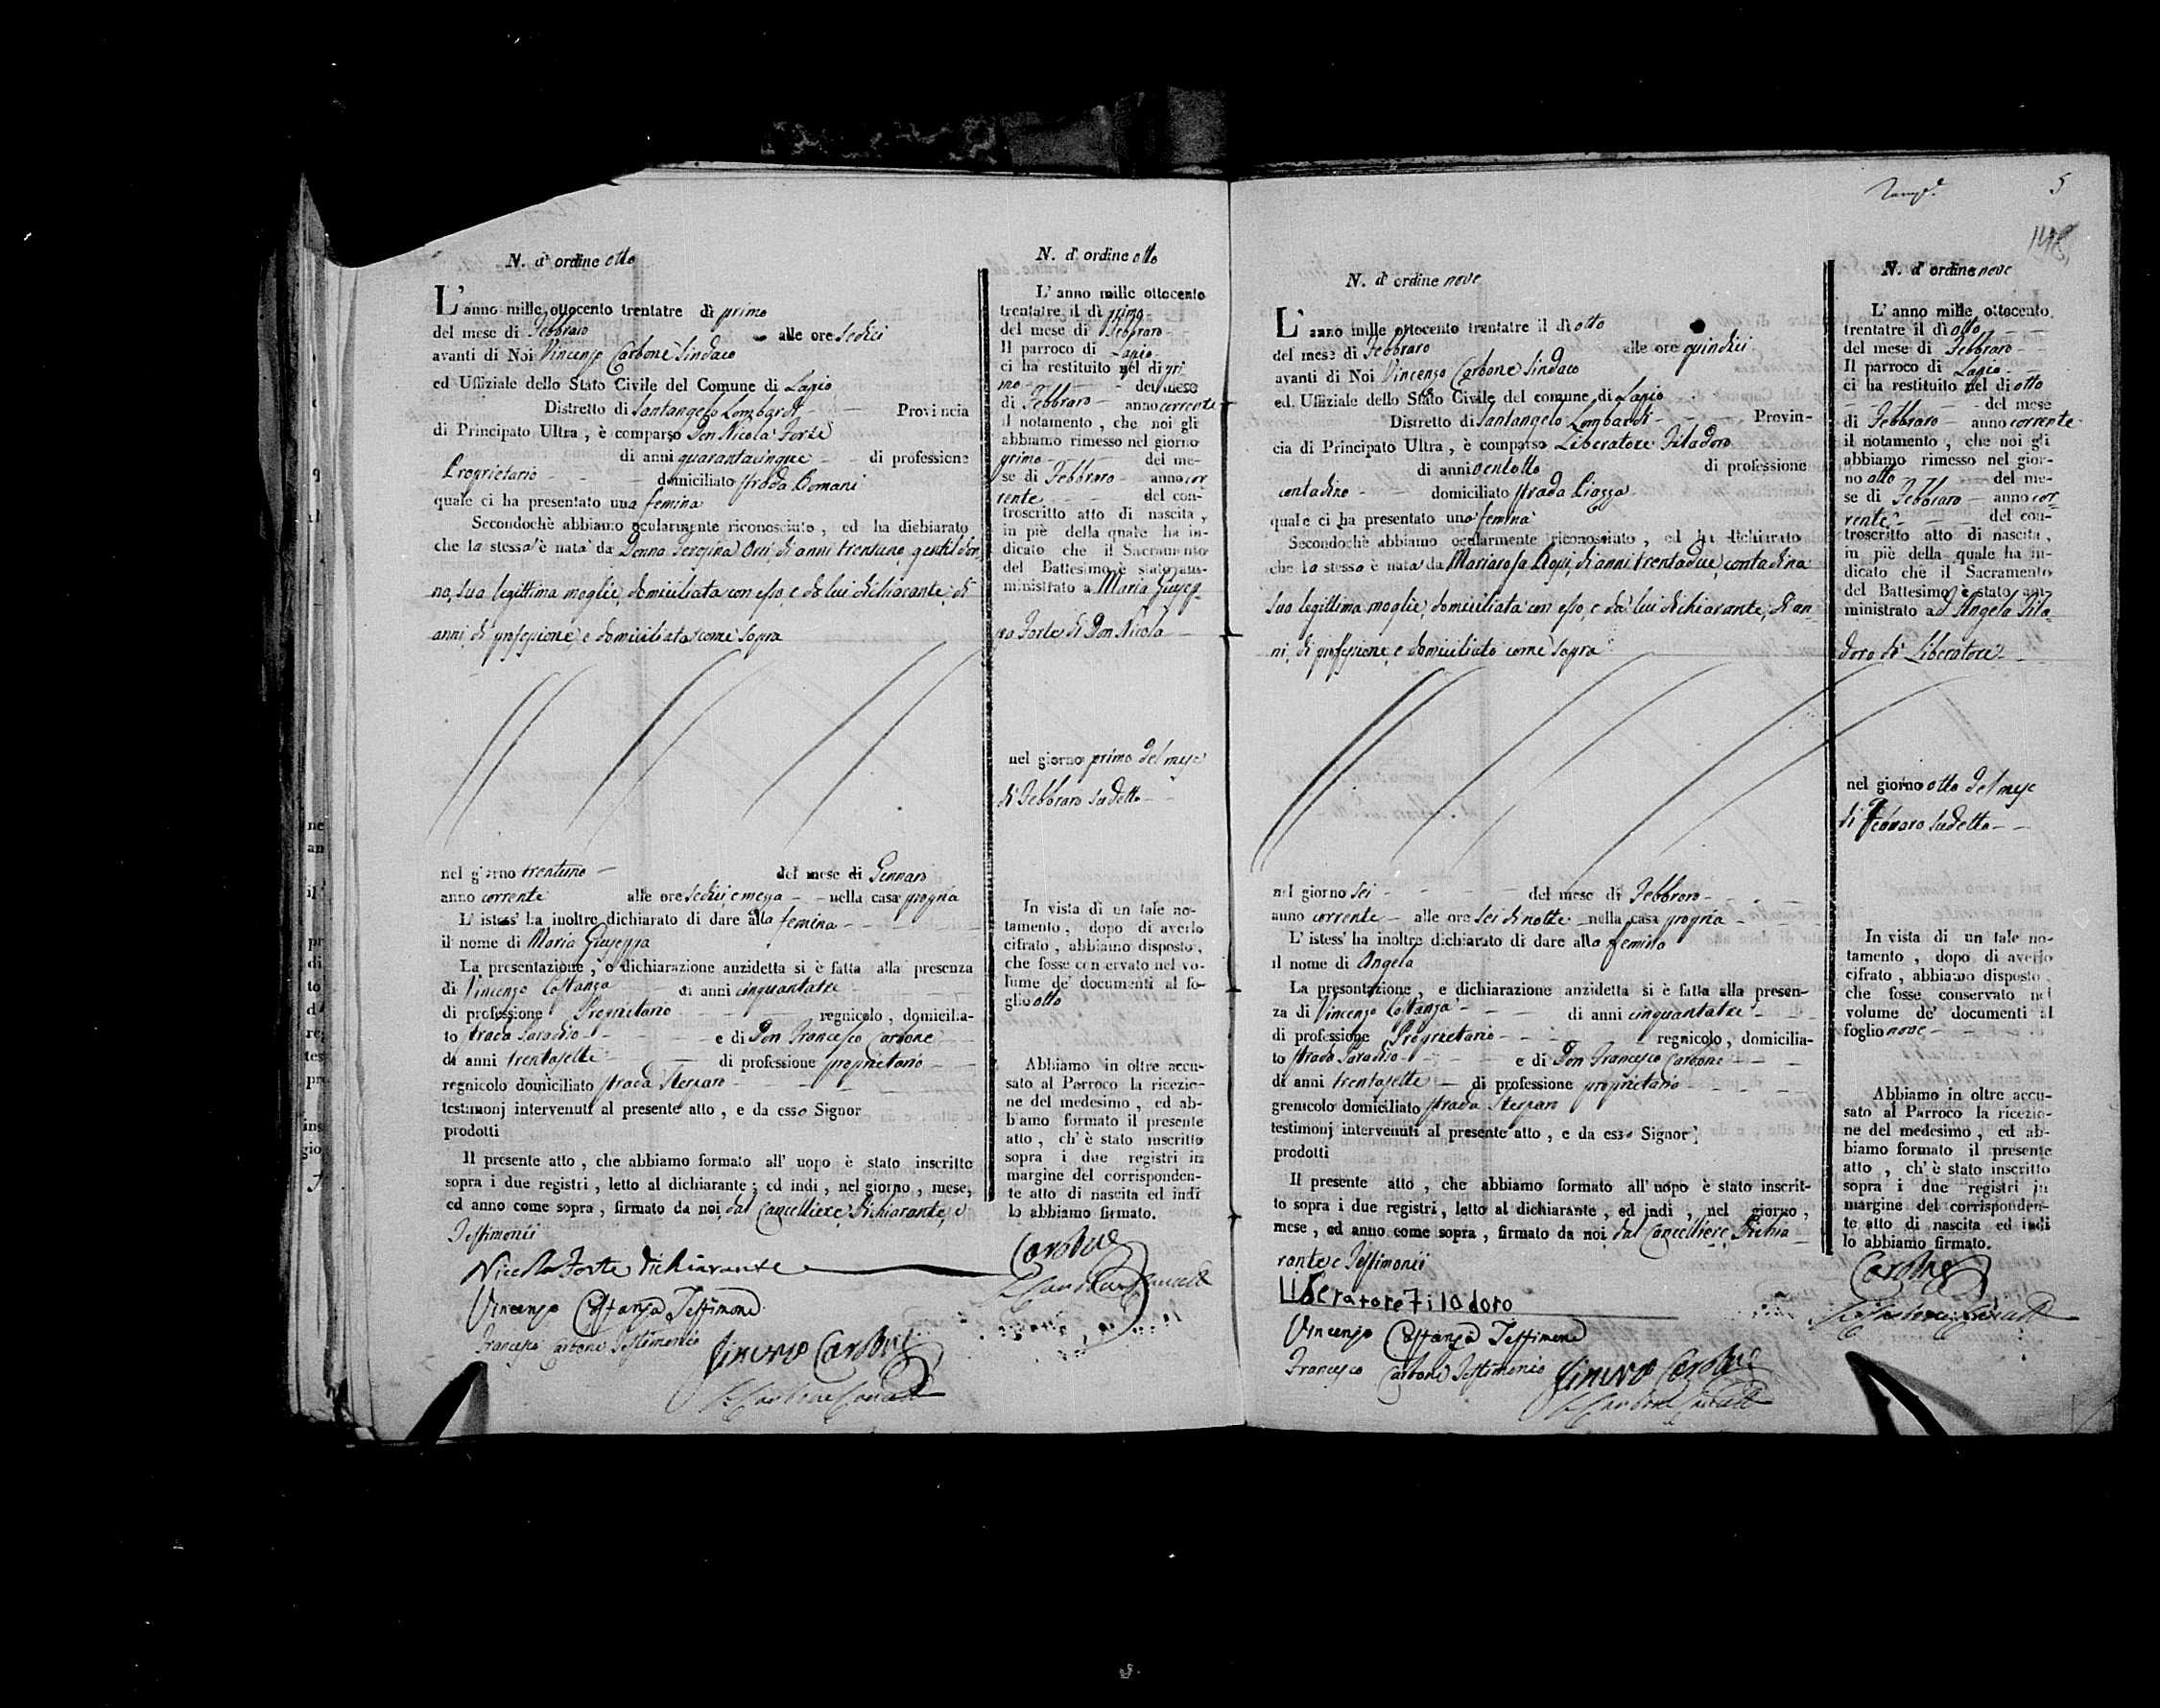 N. d' ordine otto
L' anno mille ottocento trentatre dì primo
del mese di Febbraro alle ore sedici
avanti di Noi Vincenzo Carbone Sindaco
ed Uffiziale dello Stato Civile del Comune di Lapio
Distretto di Santangelo Lombardi Provincia
di Principato Ultra, è comparso Don Nicola Forte
di anni quarantacinque di professione
Proprietario domiciliato strada
quale ci ha presentato una femina
Secondochè abbiamo ocularmente riconosciuto, ed ha dichiarato
che la stessa è nata da Donna di anni trentuno, gentildon
na, sua legittima moglie, domiciliata con esso, e da lui dichiarante, di
anni, di professione, e domiciliato come sopra
nel giorno trentuno del mese di Gennaro
anno corrente alle ore sedici e mezza nella casa propria
L' istess' ha inoltre dichiarato di dare alla femina
il nome di Maria Giuseppa
La presentazione, e dichiarazione anzidetta si è fatta alla presenza
di Vincenzo Costanza di anni cinquantatre
di professione Proprietario regnicolo, domicilia-
to strada e di Don Francesco Carbone
di anni trentasette di professione proprietario
regnicolo domiciliato strada
testimonj intervenuti al presente atto, e da esso Signor
prodotti
Il presente atto, che abbiamo formato all' uopo è stato inscritto
sopra i due registri, letto al dichiarante; ed indi, nel giorno, mese,
ed anno come sopra, firmato da noi, dal Cancelliere, Dichiarante, e
Testimonii
Nicola Forte dichiarante
Vincenzo Costanza Testimone
Francesco Carbone Testimonio
Vincenzo Carbone
N. d' ordine otto
L' anno mille ottocento
trentatre il dì primo
del mese di Febbraro
Il parroco di Lapio
ci ha restituito nel di pri-
mo del mese
di Febbraro anno corrente
il notamento, che noi gli
abbiamo rimesso nel giorno
primo del me-
se di Febbraro anno cor
rente del con-
troscritto atto di nascita,
in piè della quale ha in-
dicato che il Sacramento
del Battesimo è stato am-
ministrato a Maria Giusep-
pa Forte di Don Nicola
nel giorno primo del mese
di Febbraro sudetto
In vista di un tale no-
tamento, dopo di averlo
cifrato, abbiamo disposto,
che fosse conservato nel vo-
lume de' documenti al fo-
glio otto
Abbiamo in oltre accu-
sato al Parroco la ricezio-
ne del medesimo, ed ab-
biamo formato il presente
atto, ch' è stato inscritto
sopra i due registri in
margine del corrisponden-
te atto di nascita ed indi
lo abbiamo firmato.
Carbone
5
148
N. d' ordine nove
L' anno mille ottocento trentatre il dì otto
del mese di Febbraro alle ore quindici
avanti di Noi Vincenzo Carbone Sindaco
ed Uffiziale dello Stato Civile del comune di Lapio
Distretto di Santangelo Lombardi Provin-
cia di Principato Ultra, è comparso Liberatore Filadoro
di anni ventotto di professione
contadino domiciliato strada Piazza
quale ci ha presentato una femina
Secondochè abbiamo ocularmente riconosciuto, ed ha dichiarato
che la stessa è nata da Mariarosa di anni trentadue, contadina
sua legittima moglie, domiciliata con esso, e da lui dichiarante, di an-
ni, di professione, e domiciliato come sopra
nel giorno sei del mese di Febbraro
anno corrente alle ore sei di notte nella casa propria
L' istess' ha inoltre dichiarato di dare alla femina
il nome di Angela
La presentazione, e dichiarazione anzidetta si è fatta alla presen-
za di Vincenzo Costanza di anni cinquantatre
di professione Proprietario regnicolo, domicilia-
to strada e di Don Francesco Carbone
di anni trentasette di professione proprietario
grenicolo domiciliato strada
testimonj intervenuti al presente atto, e da esso Signor
prodotti
Il presente atto, che abbiamo formato all' uopo è stato inscrit-
to sopra i due registri, letto al dichiarante, ed indi, nel giorno,
mese, ed anno come sopra, firmato da noi, dal Cancelliere, Dichia-
rante e Testimonii
Liberatore Filadoro
Vincenzo Costanza Testimone
Francesco Carbone Testimonio
Vincenzo Carbone
N. d' ordine nove
L' anno mille ottocento
trentatre il dì otto
del mese di Febbraro
Il parroco di Lapio
ci ha restituito nel di otto
del mese
di Febbraro anno corrente
il notamento, che noi gli
abbiamo rimesso nel gior-
no otto del me-
se di Febbraro anno cor-
rente del con-
troscritto atto di nascita,
in piè della quale ha in-
dicato che il Sacramento
del Battesimo è stato am-
ministrato ad Angela Fila-
doro di Liberatore
nel giorno otto del mese
di Febbraro sudetto
In vista di un tale no-
tamento, dopo di averlo
cifrato, abbiamo disposto,
che fosse conservato nel
volume de' documenti al
foglio nove
Abbiamo in oltre accu-
sato al Parroco la ricezio-
ne del medesimo, ed ab-
biamo formato il presente
atto, ch' è stato inscritto
sopra i due registri in
margine del corrisponden-
te atto di nascita ed indi
lo abbiamo firmato.
Carbone